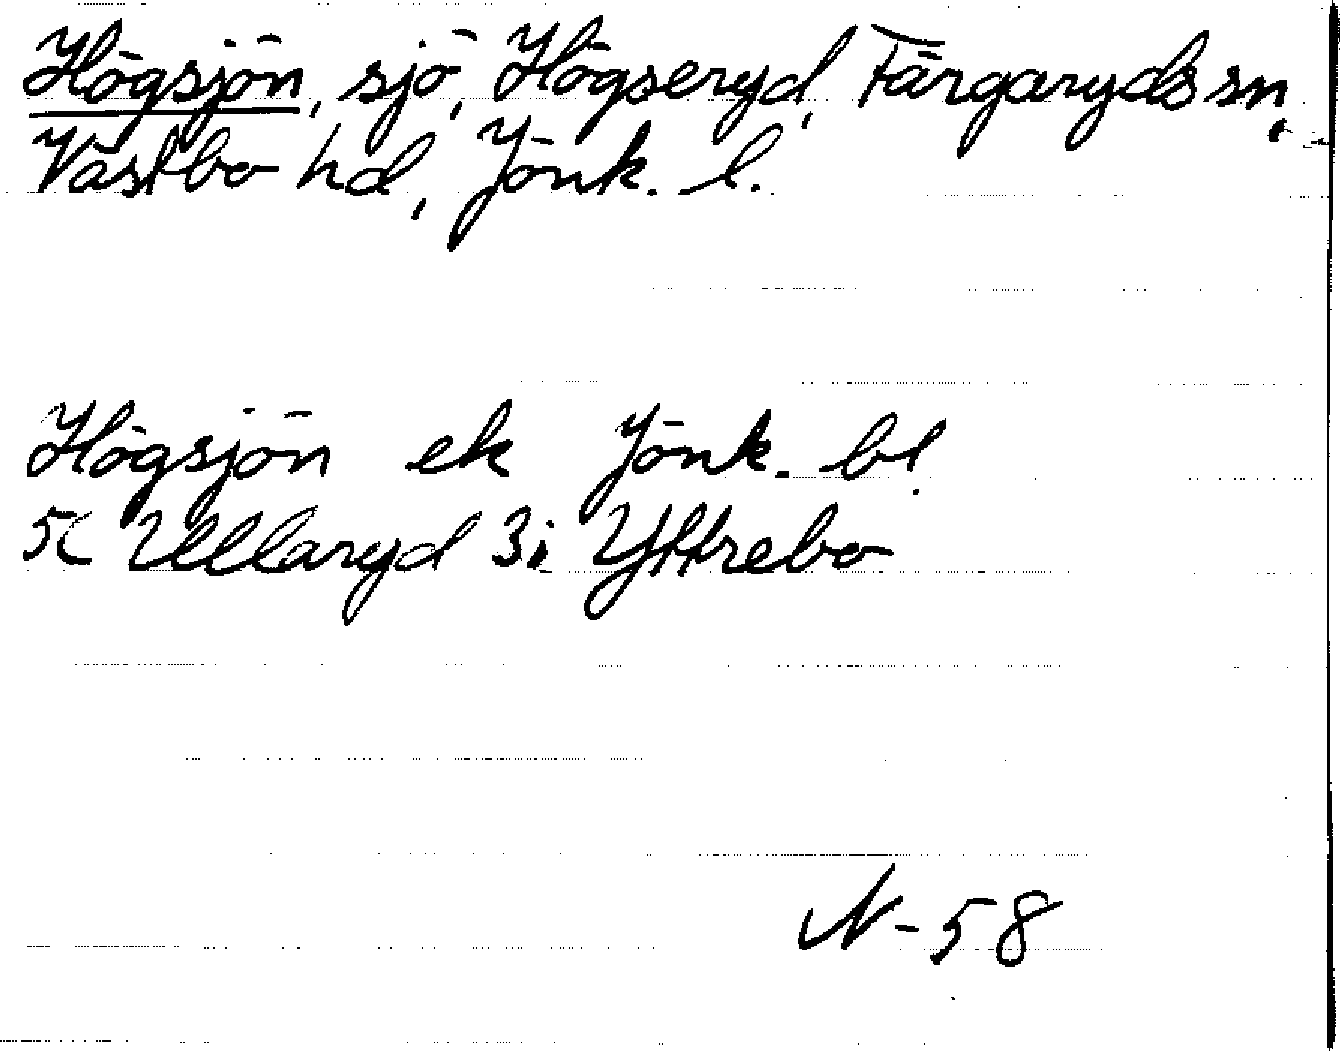 Högsjön, sjö, Högseryd, Färgaryds sn,
Västbo hd, Jönk. l.
Högsjön ek Jönk. bl.
5c Ullaryd 3i Yttrebo
N-58